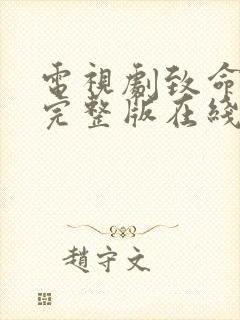 電視劇致命
完整版在綫
趙守文